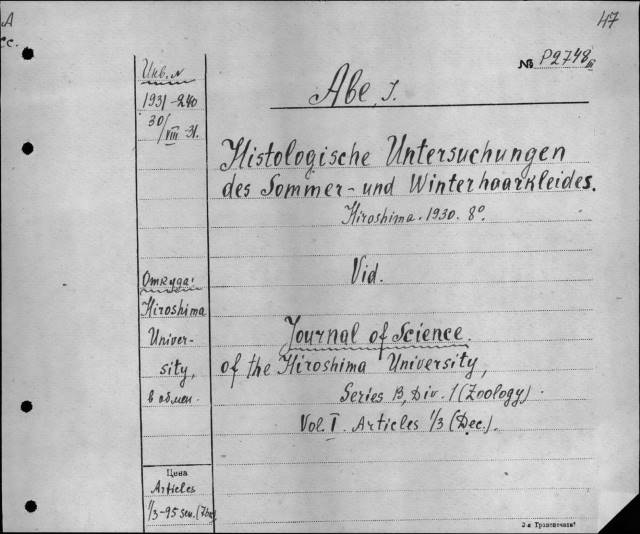 A
47
№ P2748
Инв. N
1931-240
30/VIII-31.
Abe, J.
Histologische Untersuchungen
des Sommer- und Winterhaarkleides.
Hiroshima. 1930. 8°.
Vid.
Откуда:
Hiroshima
Univer-
sity,
в обмен.
Journal of Science
of the Hiroshima University,
Series B, Div. 1 (Zoology).
Vol. I. Articles 1/3 (Dec.).
Цена
Articles
1/3-95 sen.
3-я Гранпечать